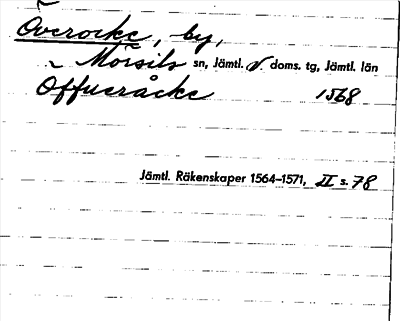 Överocke, by,
~ Mörsils sn, Jämtl. v doms. tg, Jämtl. län
Offueråcke 1568
Jämtl. Räkenskaper 1564–1571, II s. 78